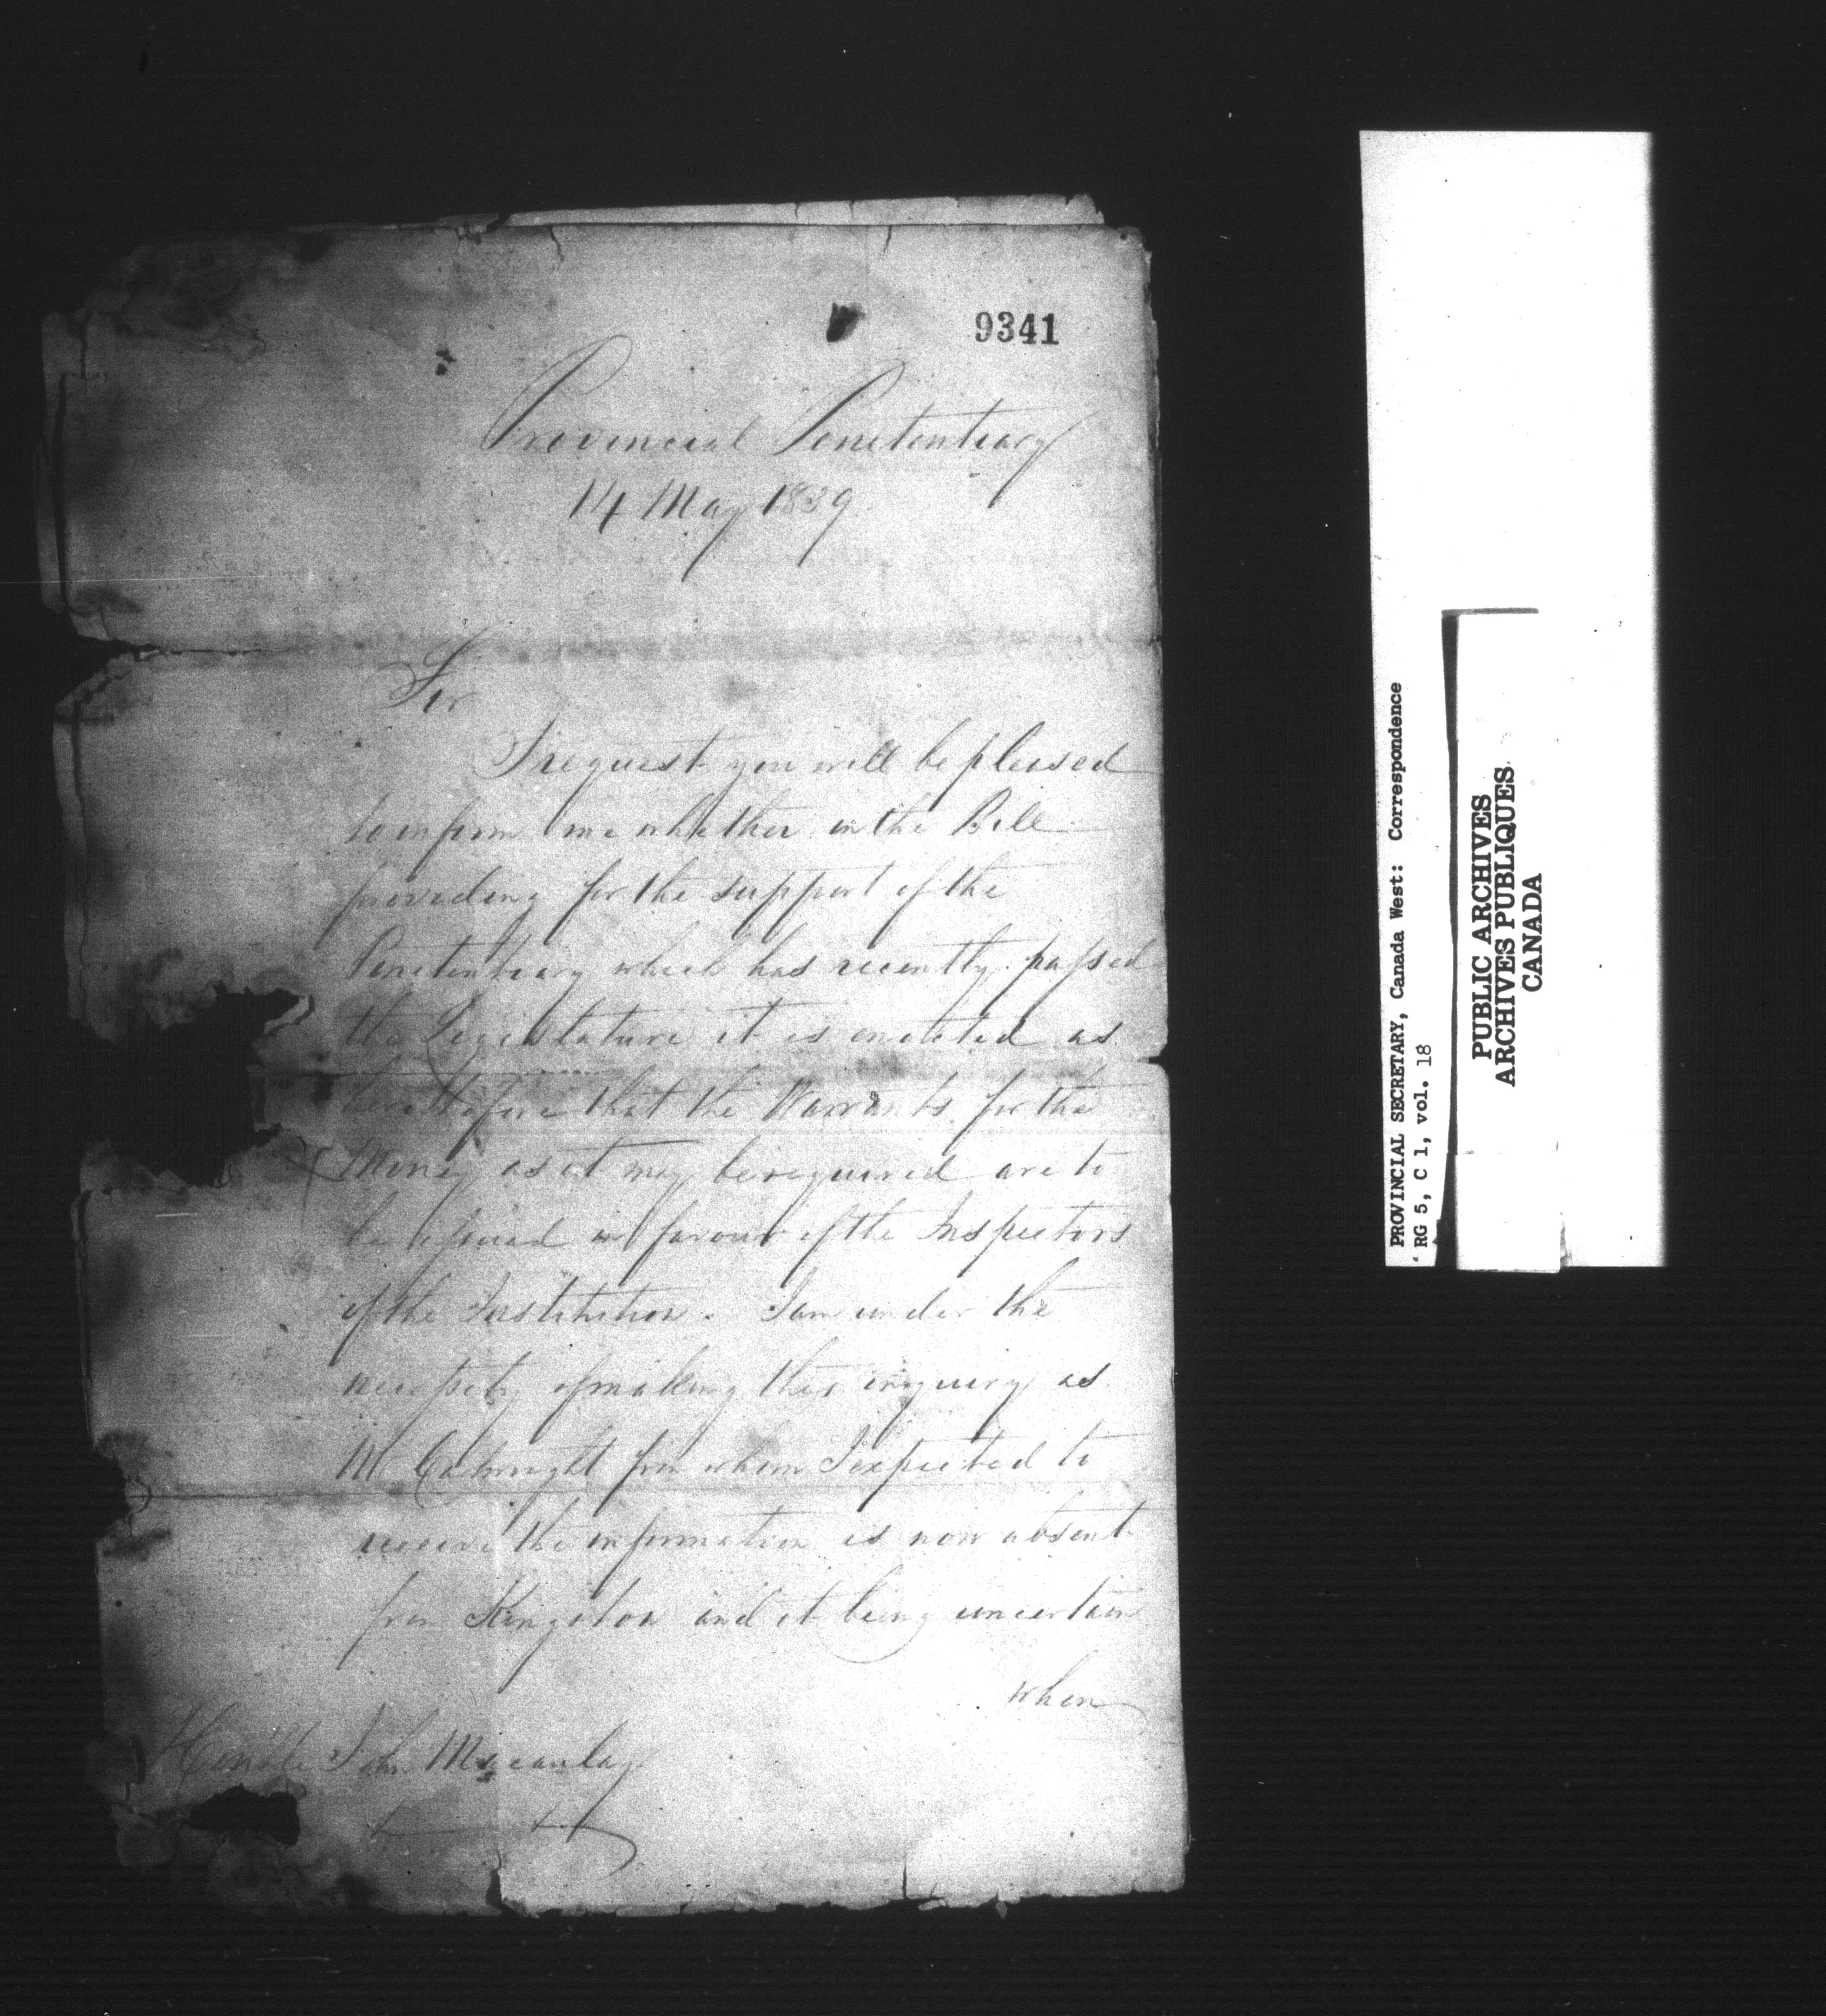 9341
Provincial Penitentiary
14 May 1839
Sir
I request you will be pleased
to inform me whether in the Bill
providing for the support of the
Penitentiary which has recently passed
the Legislature it is enacted as
heretofore that the Warrants for the
Money as it may be required are to
be issued in favour of the Inspectors
of the Institution. I am under the
necessity of making this inquiry as
Mr Cartwright from whom I expected to
receive the information is now absent
from Kingston and it being uncertain
when
Honble John Macaulay
PROVINCIAL SECRETARY, Canada West: Correspondence
RG 5, C 1, vol. 18
PUBLIC ARCHIVES
ARCHIVES PUBLIQUES
CANADA